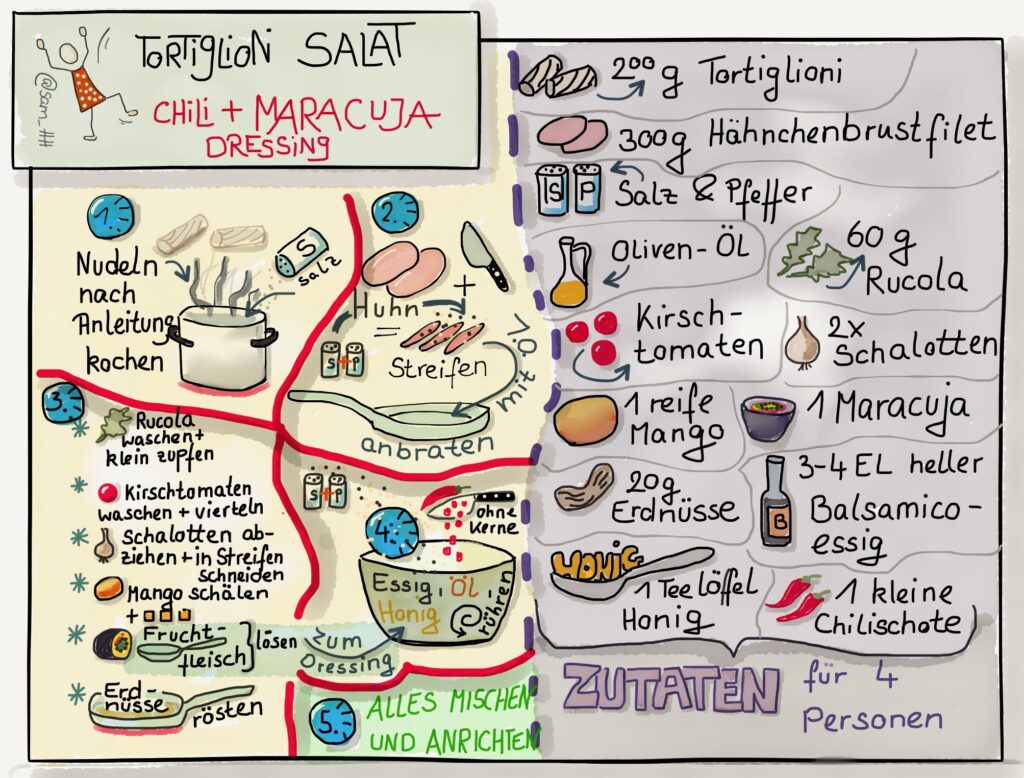 TORTIGLIONI SALAT
CHILI + MARACUJA
DRESSING
@sam_##
1.
Nudeln
nach
Anleitung
kochen
S
Salz
2.
Huhn
+
=
S+P
Streifen
mit Öl
anbraten
3.
* Rucola
waschen +
klein zupfen
* Kirschtomaten
waschen + vierteln
* Schalotten ab-
ziehen + in Streifen
schneiden
* Mango schälen
+
* Frucht-
fleisch
lösen
zum
Dressing
* Erd-
nüsse
rösten
S+P
4.
ohne
Kerne
Essig, Öl,
Honig
rühren
5.
ALLES MISCHEN
UND ANRICHTEN
200 g Tortiglioni
300 g Hähnchenbrustfilet
S P
Salz & Pfeffer
Oliven-Öl
60 g
Rucola
Kirsch-
tomaten
2x
Schalotten
1 reife
Mango
1 Maracuja
20g
Erdnüsse
B
3-4 EL heller
Balsamico-
essig
HONIG
1 Teelöffel
Honig
1 kleine
Chilischote
ZUTATEN
für 4
Personen